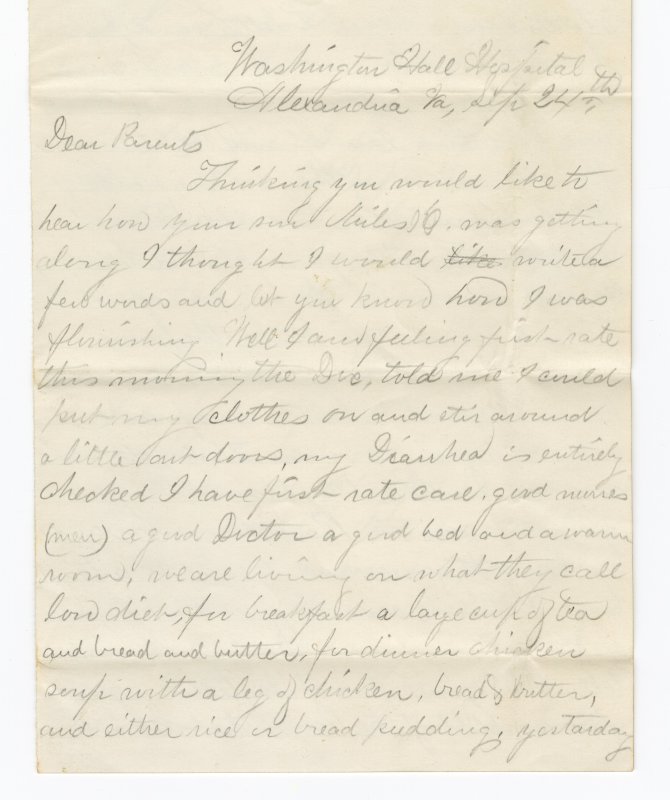 Washington Hall Hospital
Alexandria Va, sep 24th
Dear Parents
Thinking you would like to
hear how your son Miles was getting
along I thought I would like write a
few words and let you know how I was
flourishing Well I am feeling first rate
this morning the Doc, told me I could
put on my clothes on and stir around
a little out doors, my Diarrhea is entirely
checked I have first rate care. good nurses
(men) a good Doctor a good bed and a warm
room, we are living on what they call
low diet, for breakfast a large cup of tea
and bread and butter, for dinner chicken
soup with a leg of chicken, bread & butter,
and either rice or bread pudding, yestarday